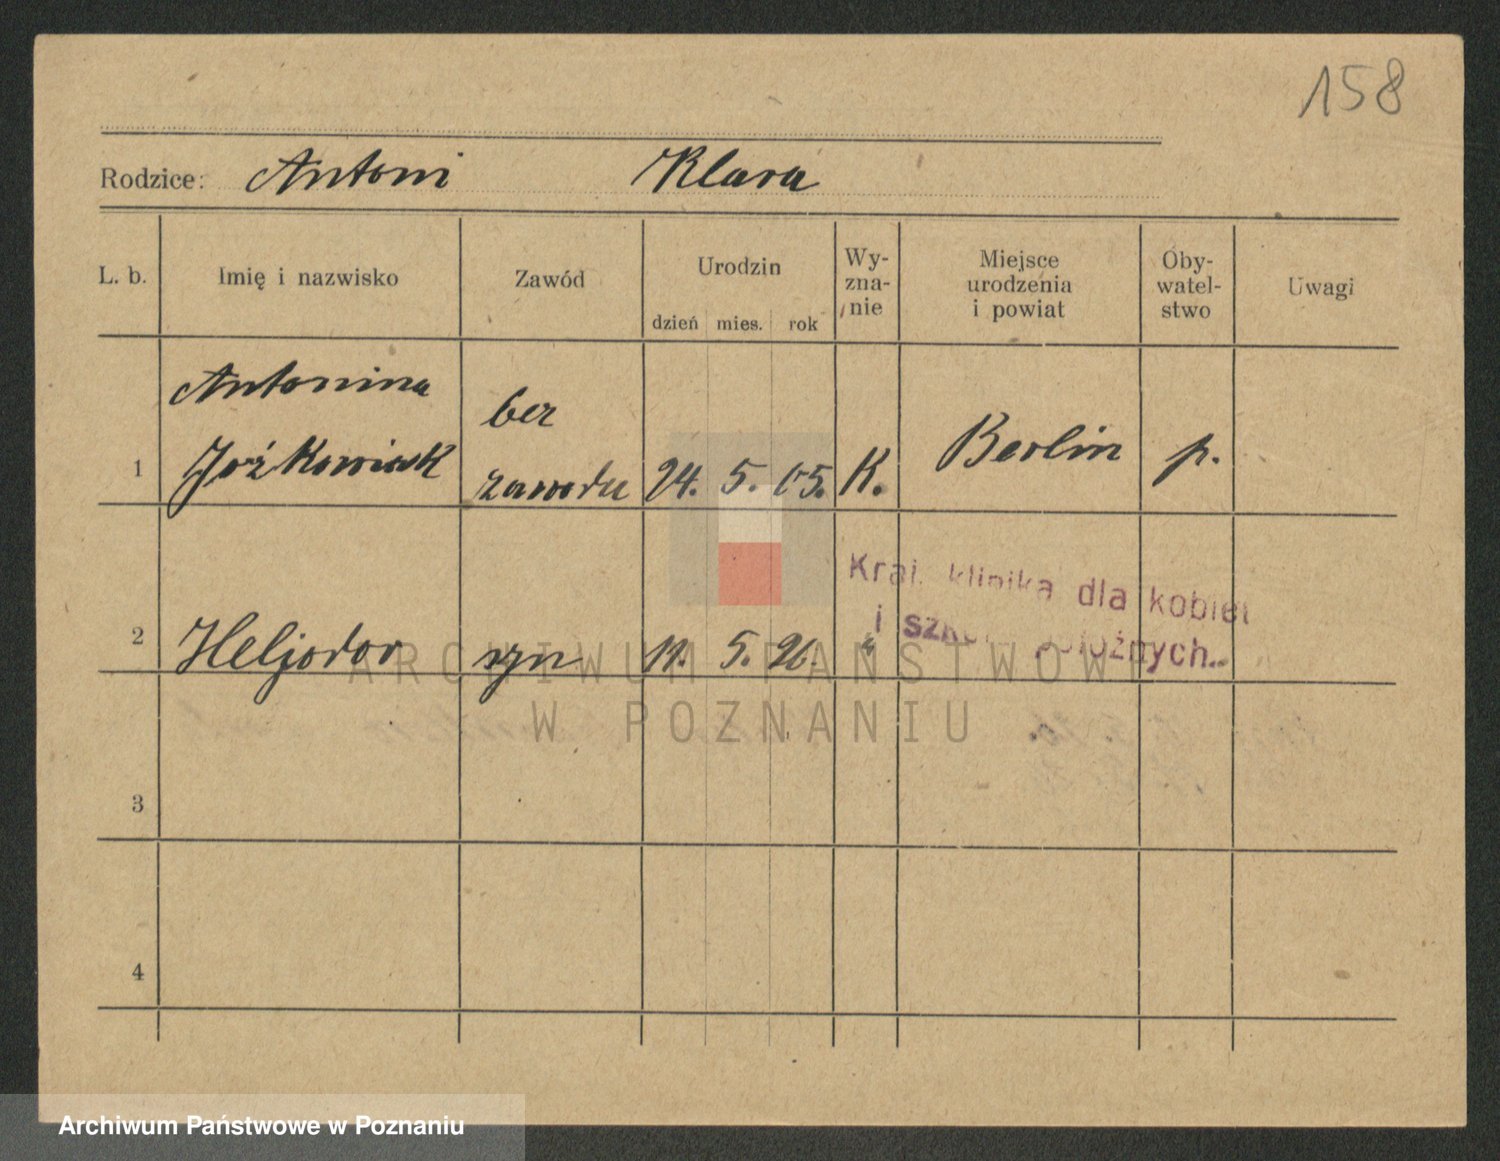 158
Rodzice: Antoni Klara
L. b. Imię i nazwisko Zawód Urodzin dzień mies. rok Wy-zna-nie Miejsce urodzenia i powiat Oby-watel-stwo Uwagi
Antonina bez
1 Jóżkowiak zawodu 24. 5. 05. K. Berlin p.
Kraj. klinika dla kobiet
i położnych.
2 Heljodor syn 11. 5. 26. "
ARCHIWUM PAŃSTWOWE
W POZNANIU
3
4
Archiwum Państwowe w Poznaniu